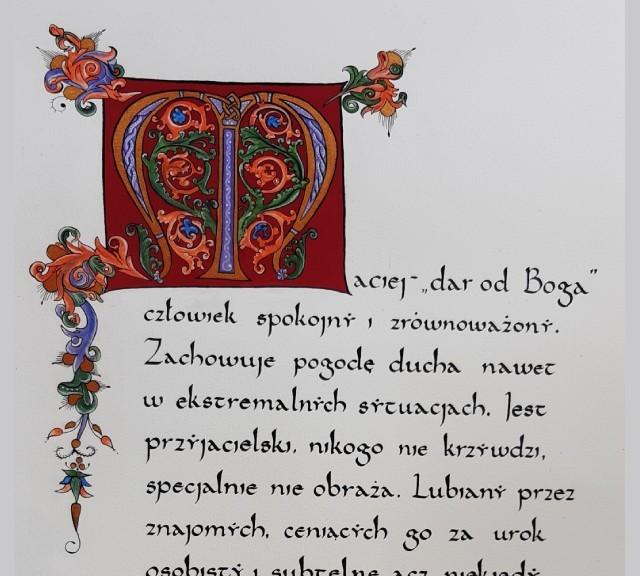 Maciej - „dar od Boga”
człowiek spokojny i zrównoważony.
Zachowuje pogodę ducha nawet
w ekstremalnych sytuacjach. Jest
przyjacielski, nikogo nie krzywdzi,
specjalnie nie obraża. Lubiany przez
znajomych, ceniących go za urok
osobisty i subtelne acz niekiedy